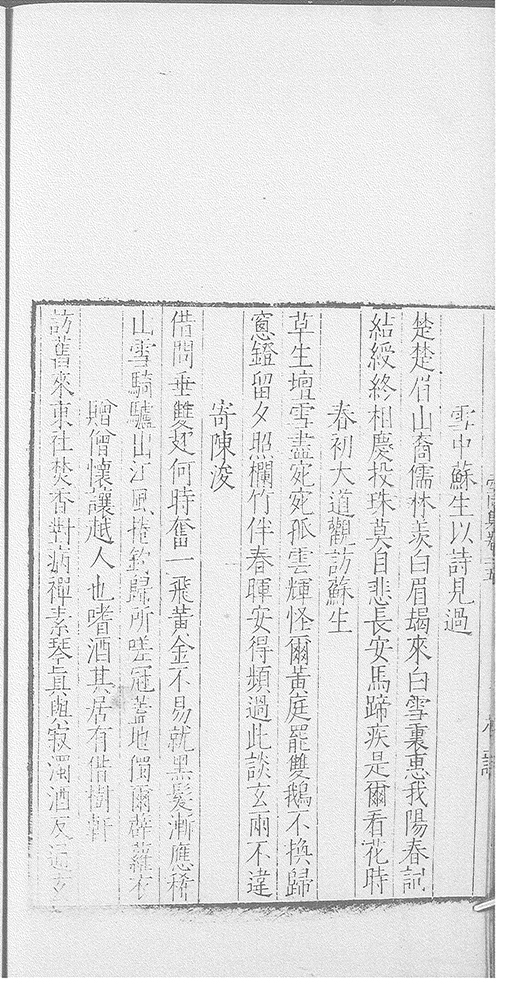 雪中蘇生以詩見過
楚楚眉山裔儒林羨白眉朅來白雪裏惠我陽春詞
結綬終相慶投珠莫自悲長安馬蹄疾是爾看花時
春初大道觀訪蘇生
草生壇雪盡宛宛孤雲輝怪爾黃庭罷雙鵝不換歸
窻鐙留夕照欄竹伴春暉安得頻過此談玄兩不違
寄陳浚
借問垂雙翅何時奮一飛黃金不易就黑髮漸應稀
山雪騎驢出江風捲釣歸所嗟冠蓋地獨爾薜蘿衣
贈僧懷讓越人也嗜酒其居有偕樹軒
訪舊來東社焚香對病禪素琴眞與寂濁酒反通玄